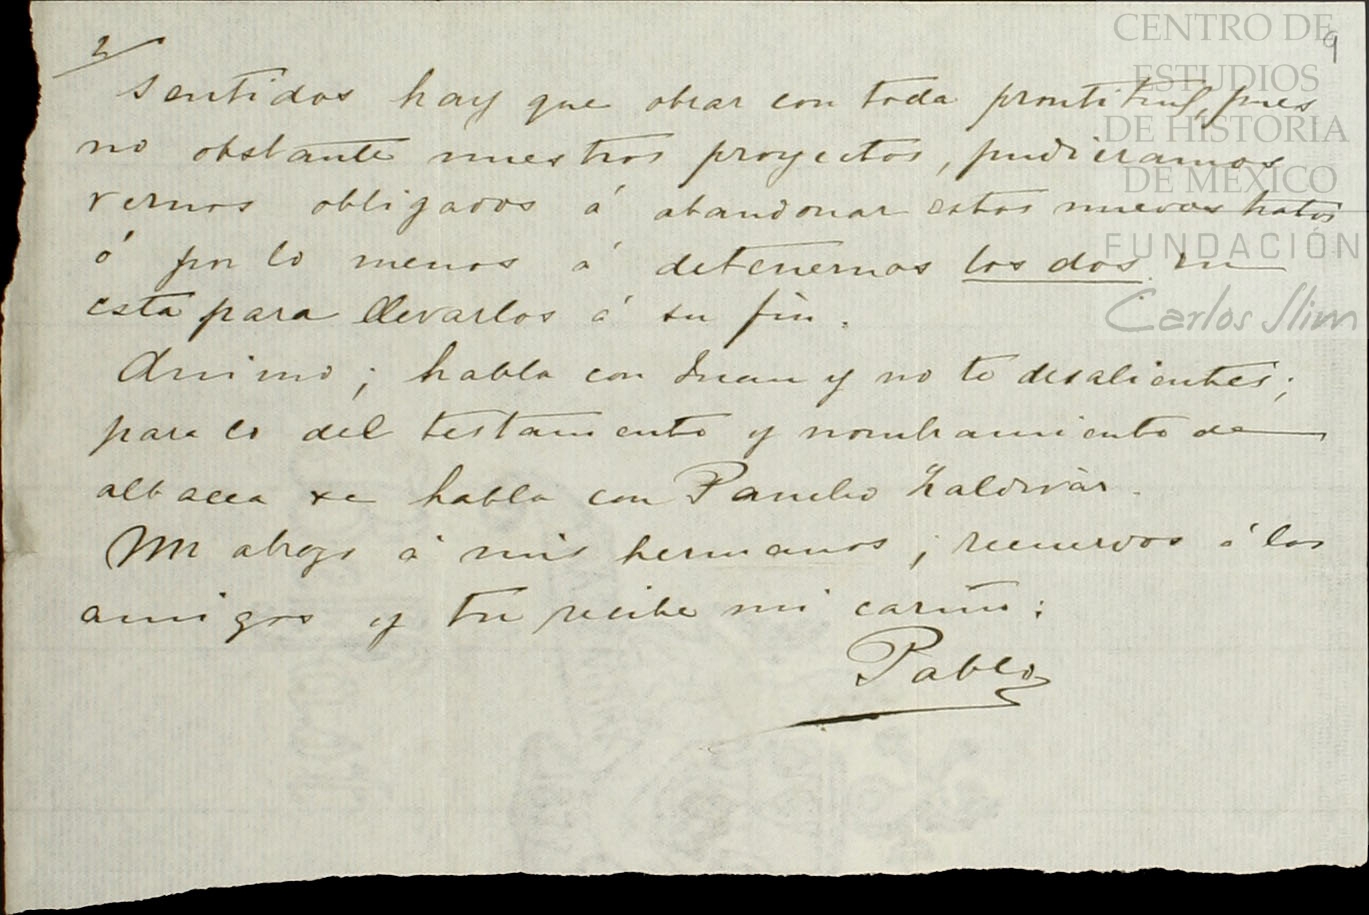 2
9
sentidos hay que obrar con toda prontitud, pues
no obstante nuestros proyectos, pudieramos
vernos obligados á abandonar estos nuevos tratos
ó por lo menos á detenernos los dos en
esta para llevarlos á su fin.
Animo; habla con Juan y no te desalientes;
para lo del testamento y nombramiento de
albacea se habla con Pancho Zaldivár.
Mi abrazo á mis hermanos; recuerdos á los
amigos y tu recibe mi cariño:
Pablo
CENTRO DE
ESTUDIOS
DE HISTORIA
DE MÉXICO
FUNDACIÓN
Carlos Slim